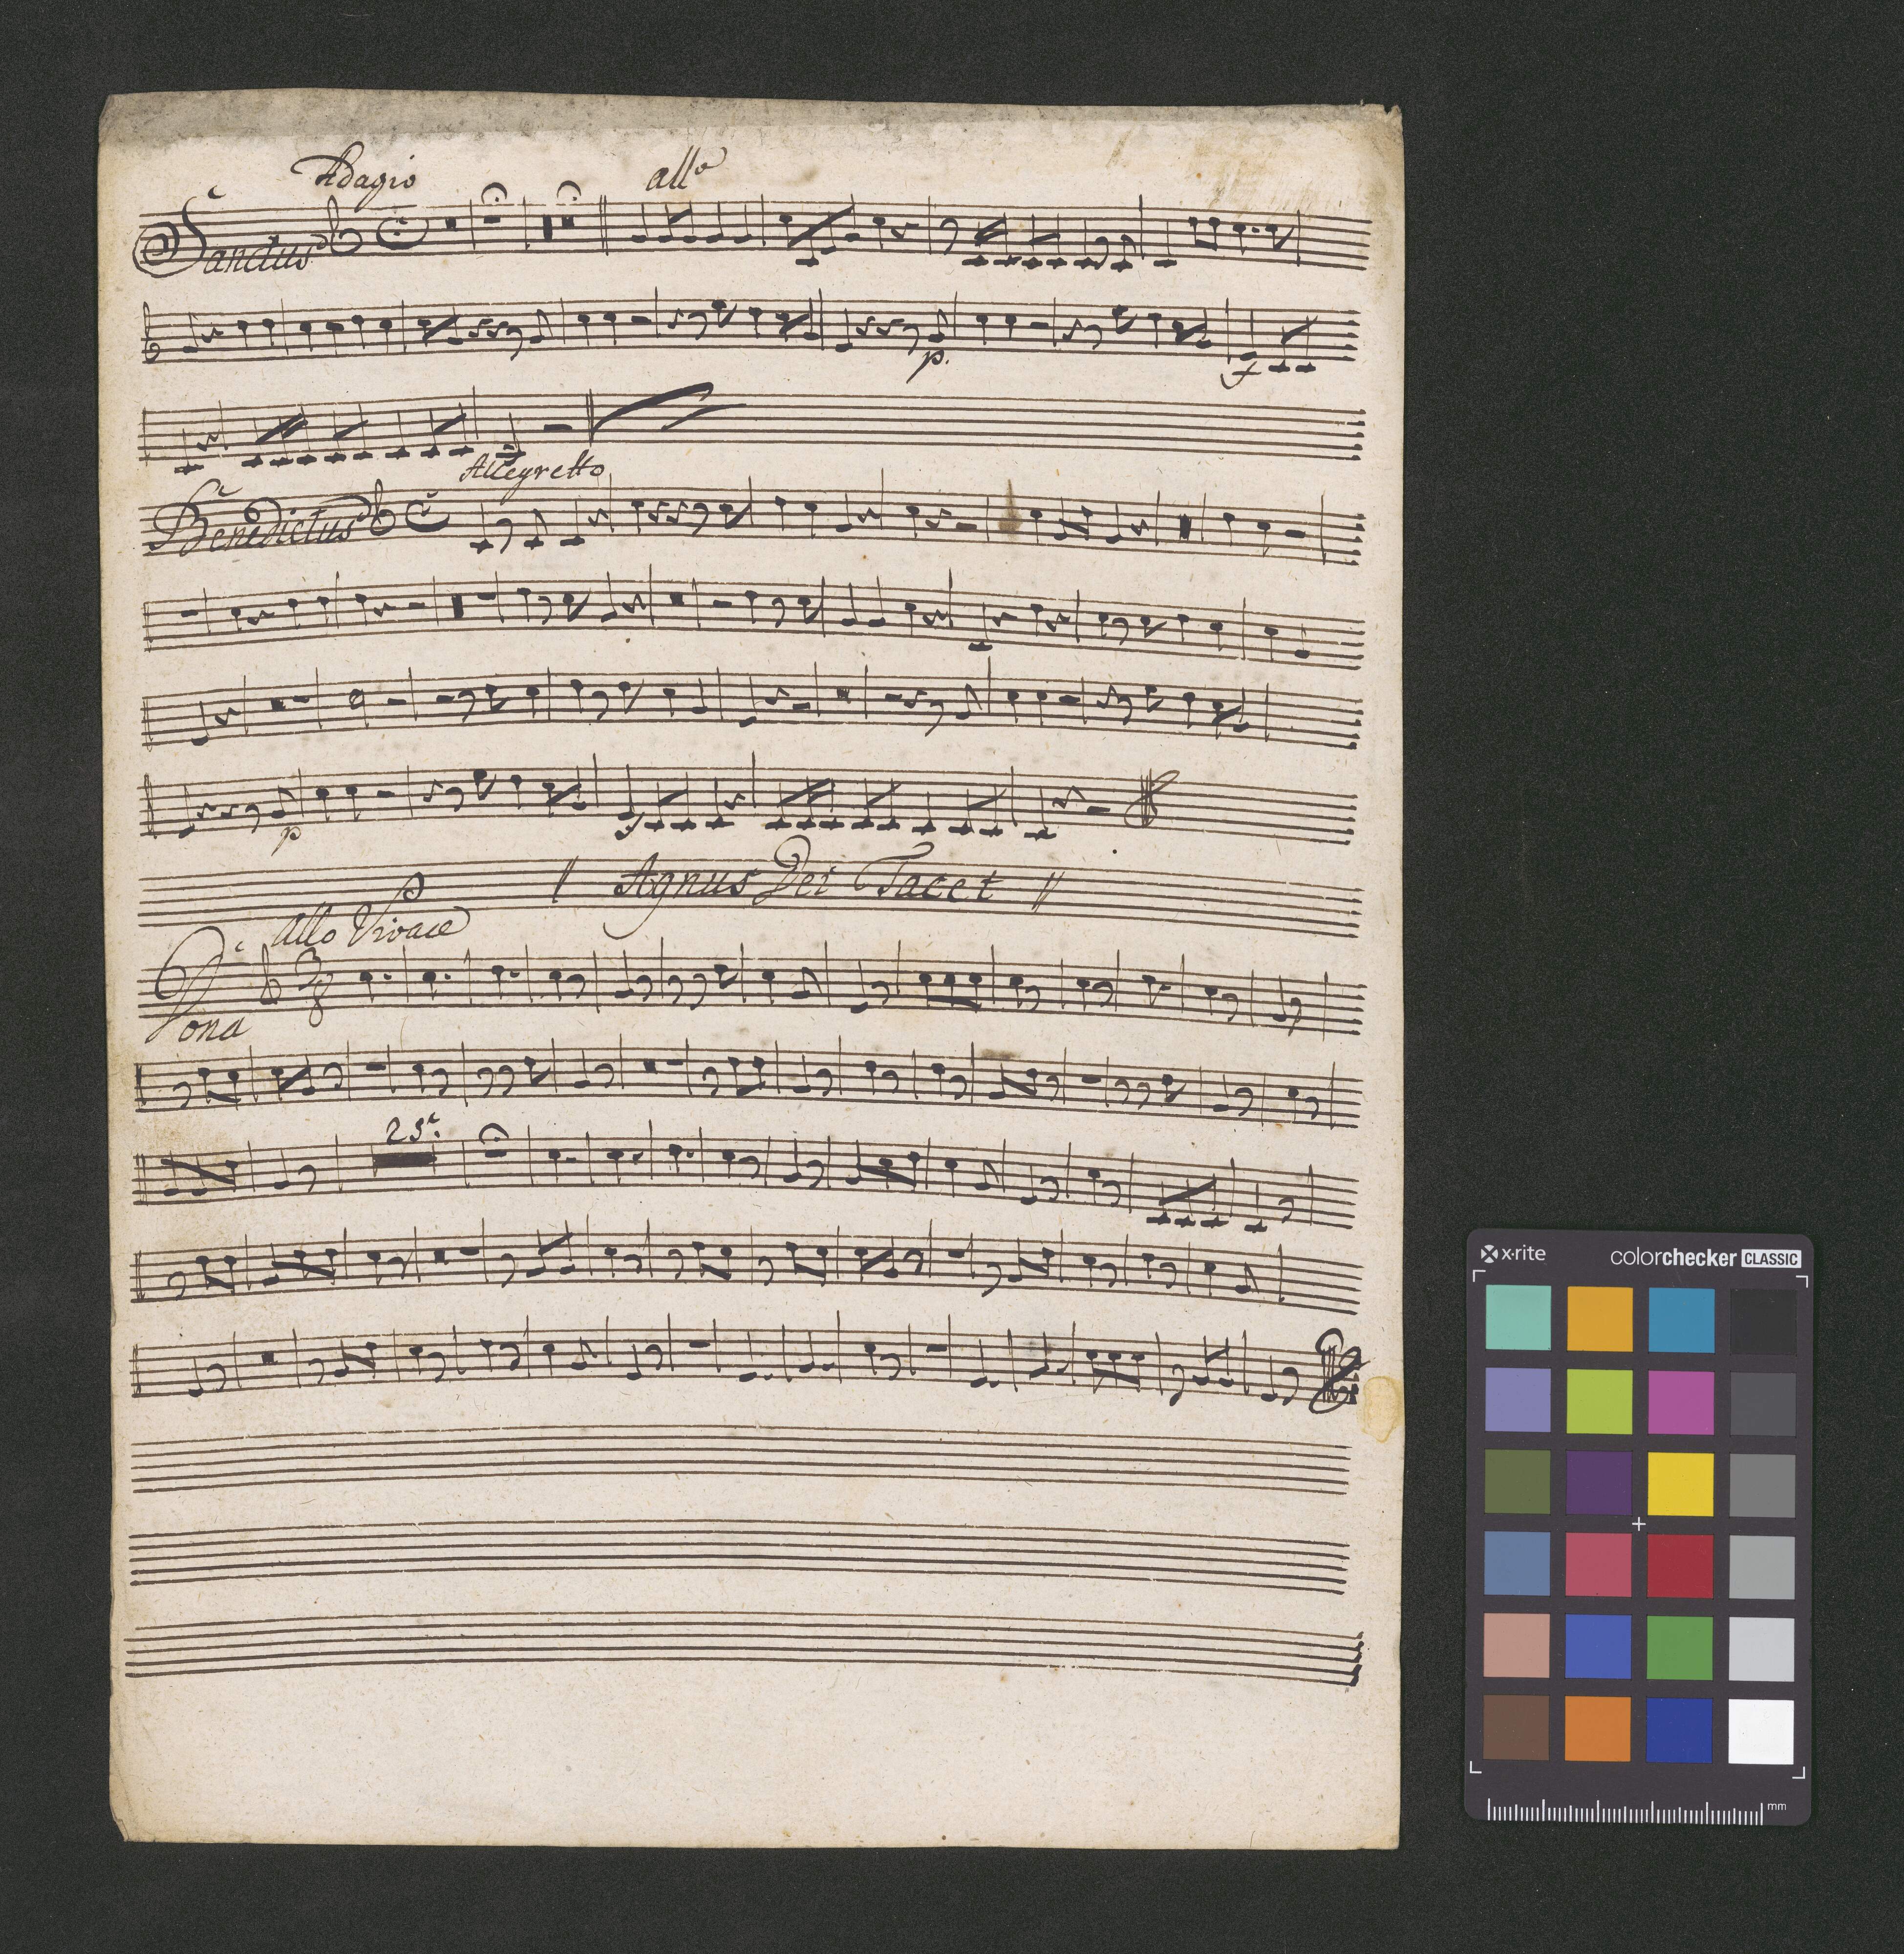 Adagio allo
Sanctus
p. f
Allegretto
Benedictus
p f
Agnus Dei Tacet
allo Vivace
3/8
Dona
25.
x-rite colorchecker CLASSIC
mm